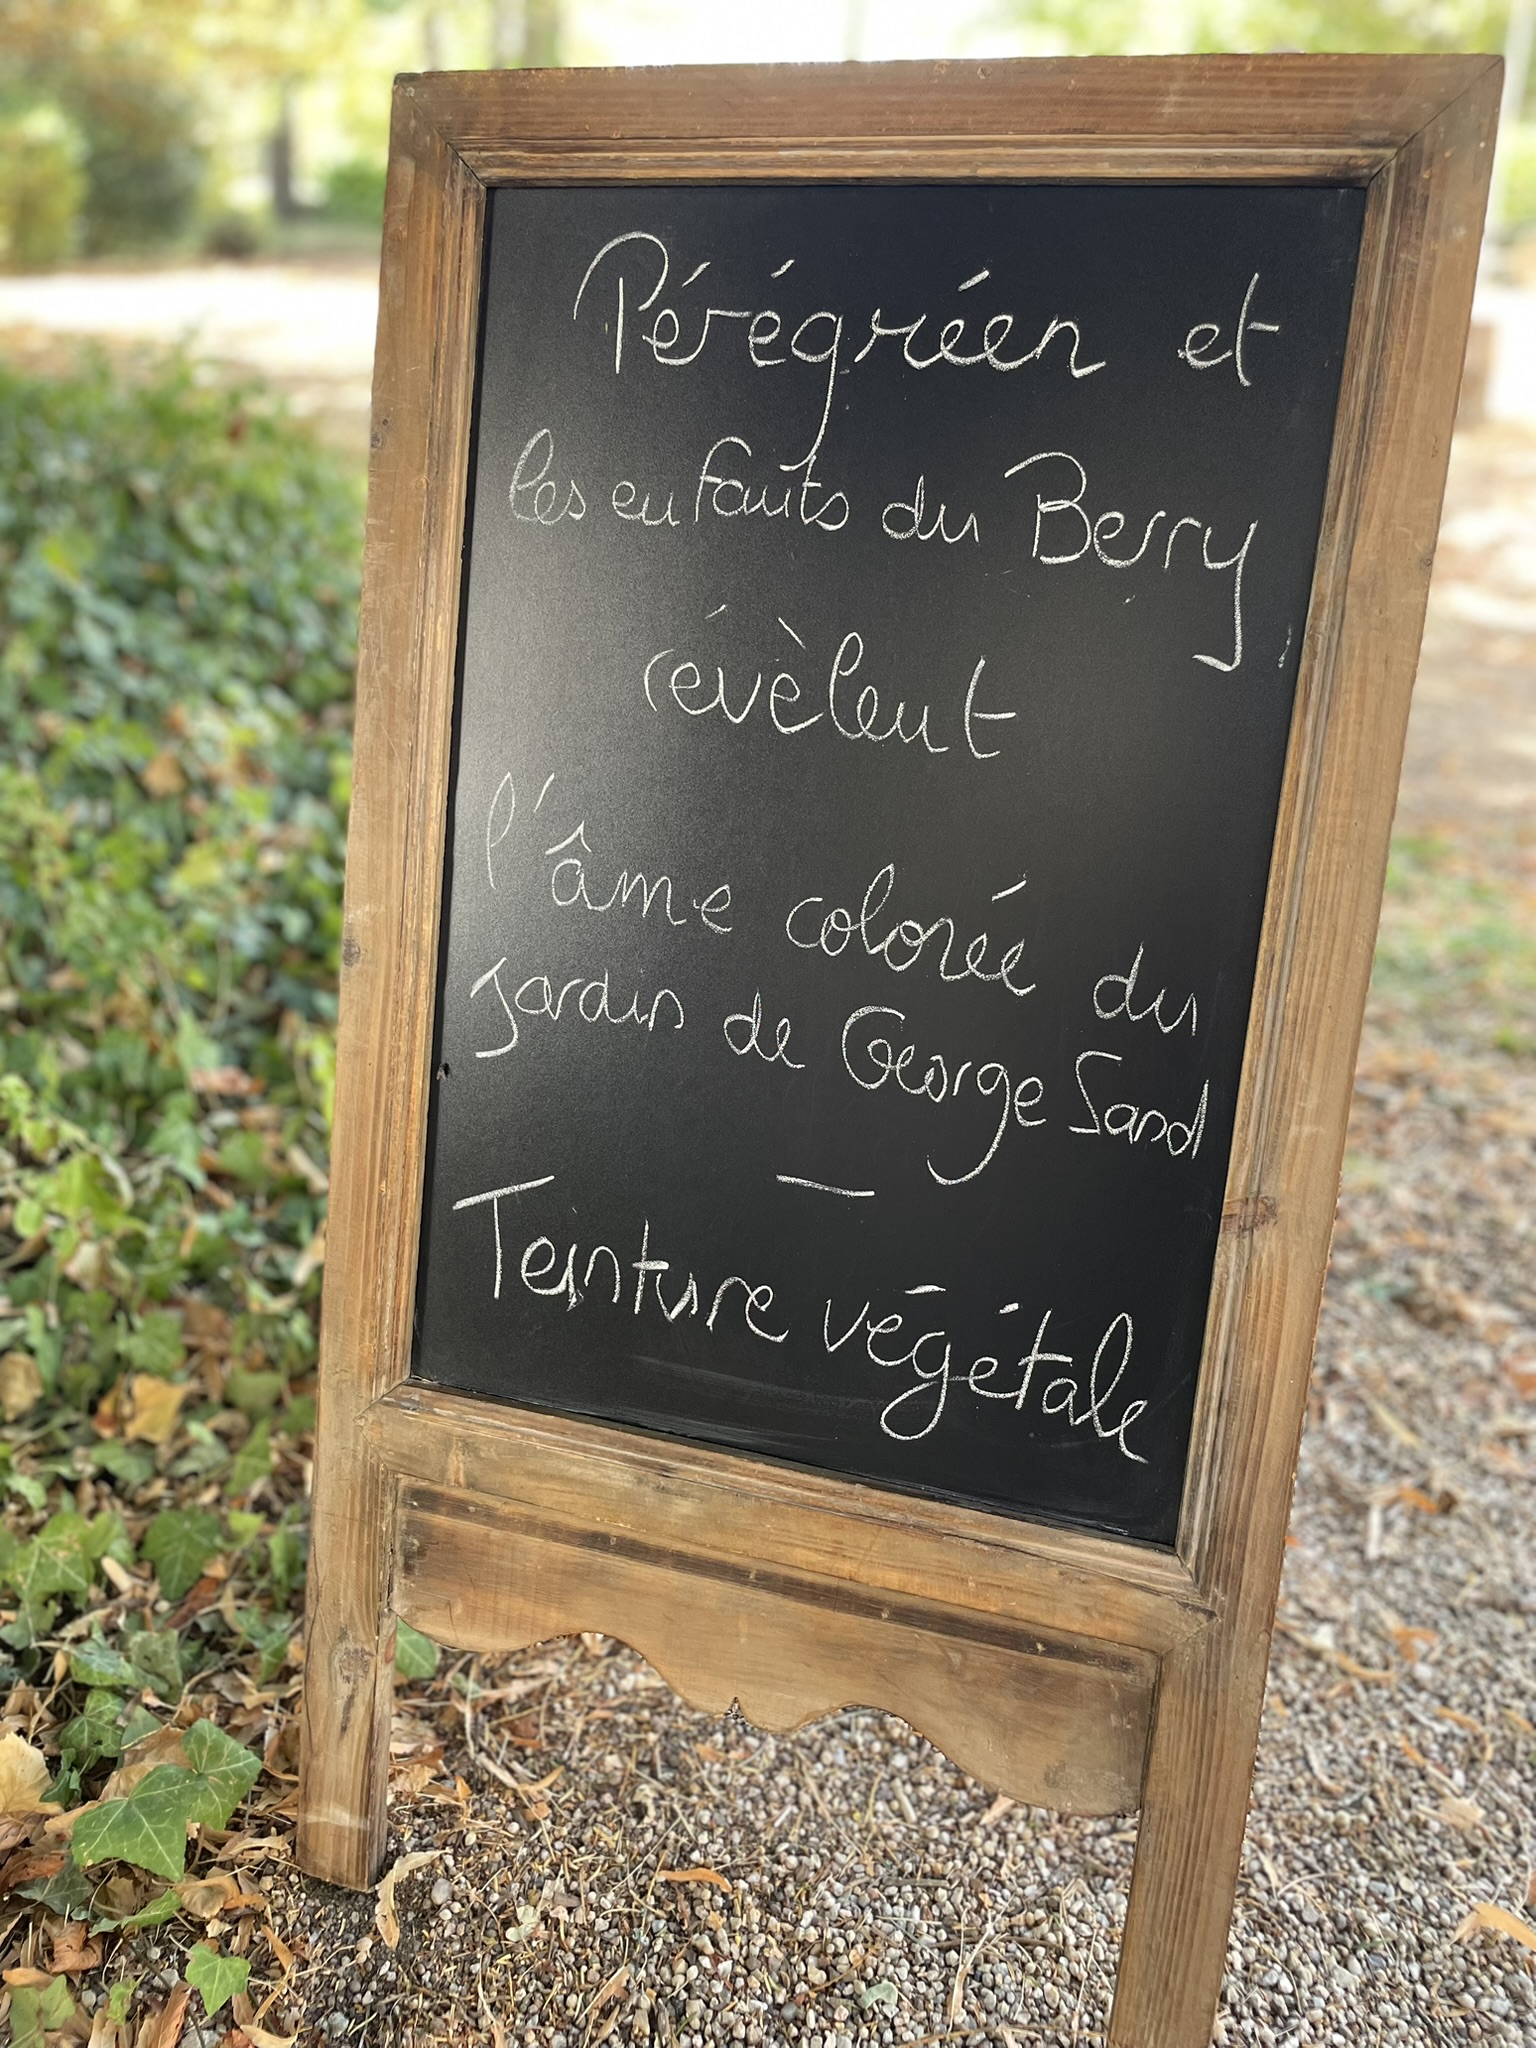 Pérégréen et
les enfants du Berry
révèlent
l'âme colorée du
jardin de George Sand
—
Teinture végétale